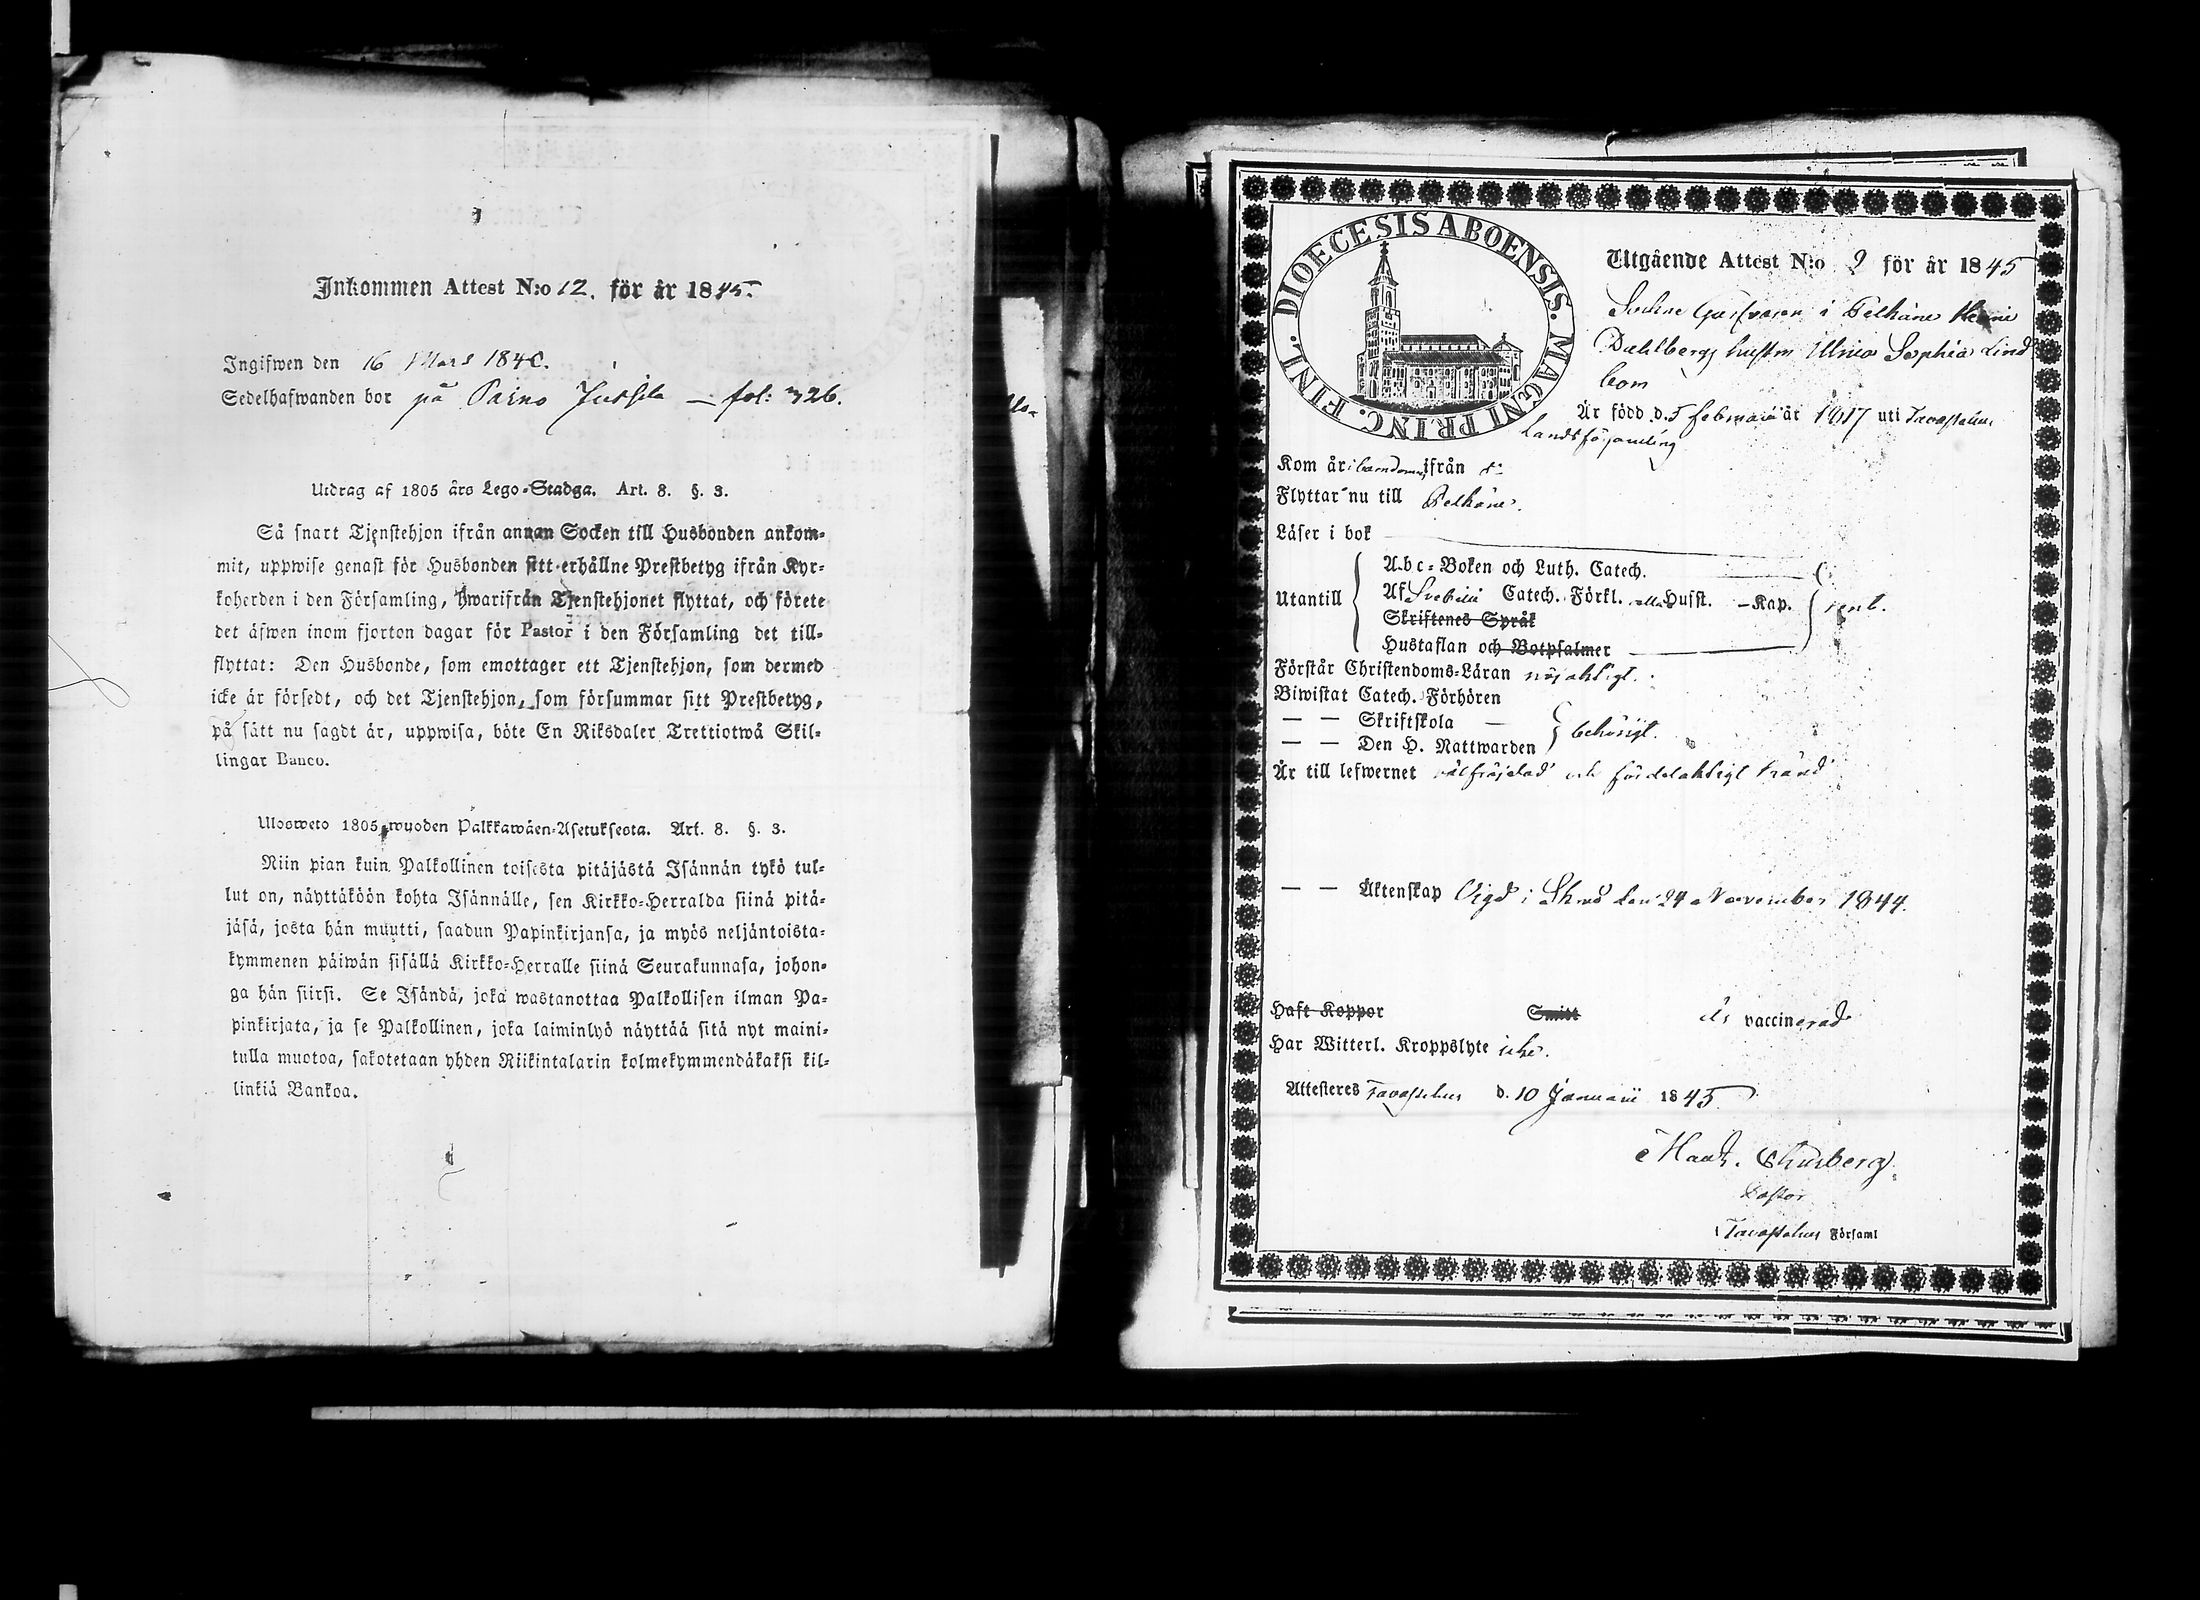 Inkommen Attest N:o 12. för år 1845.
Ingifwen den 16 Mars 184
Sedelhafwanden bor på Paino Jussila — fol: 326.
Utdrag af 1805 års Lego-Stadga. Art. 8. §. 3.
Så snart Tjenstehjon ifrån annan Socken till Husbonden ankom-
mit, uppwise genast för Husbonden sitt erhållne Prestbetyg ifrån Kyr-
koherden i den Församling, hwarifrån Tjenstehjonet flyttat, och förete
det äfwen inom fjorton dagar för Pastor i den Församling det till-
flyttat: Den Husbonde, som emottager ett Tjenstehjon, som dermed
icke är försedt, och det Tjenstehjon, som försummar sitt Prestbetyg,
på sätt nu sagdt är, uppwisa, böte En Riksdaler Trettiotwå Skil-
lingar Banco.
Ulosweto 1805 wuoden Palkkawäen-Asetuksesta. Art. 8. §. 3.
Niin pian kuin Palkollinen toisesta pitäjästä Isännän tykö tul-
lut on, näyttäköön kohta Isännälle, sen Kirkko-Herralda siinä pitä-
jäsä, josta hän muutti, saadun Papinkirjansa, ja myös neljäntoista-
kymmenen päiwän sisällä Kirkko-Herralle siinä Seurakunnasa, johon-
ga hän siirsi. Se Isändä, joka wastanottaa Palkollisen ilman Pa-
pinkirjata, ja se Palkollinen, joka laiminlyö näyttää sitä nyt maini-
tulla muotoa, sakotetaan yhden Riikintalarin kolmekymmendäkaksi kil-
linkiä Bankoa.
DIOECESIS ABOENSIS. MAGNI PRINC. FINL.
Utgående Attest N:o 9 för år 1845
i Pelkäne
Dahlbergs hustru Ulrica Sophia Lind
bom
Är född d. 5 Februarii år 1817 uti Tavastehus
Landsförsamling
Kom år i barndomen ifrån d:o
Flyttar nu till Pelkäne.
Läser i bok
Utantill
Abc-Boken och Luth. Catech.
Af Svebilii Catech. Förkl. alla Hufst. — Kap.
Skriftenes Språk
Hustaflan och Botpsalmer
rent.
Förstår Christendoms-Läran nöjaktigt.
Biwistat Catech. Förhören
— — Skriftskola —
— — Den H. Nattwarden
behörigt.
Är till lefwernet välfrejdad och fördelaktigt känd
— — Äktenskap Vigd i den 24 November 1844.
Haft Koppor Smitt är vaccinerad
Har Witterl. Kroppslyte icke.
Attesteres Tavastehus d. 10 Januarii 1845
Pastor
Tavastehus Församl